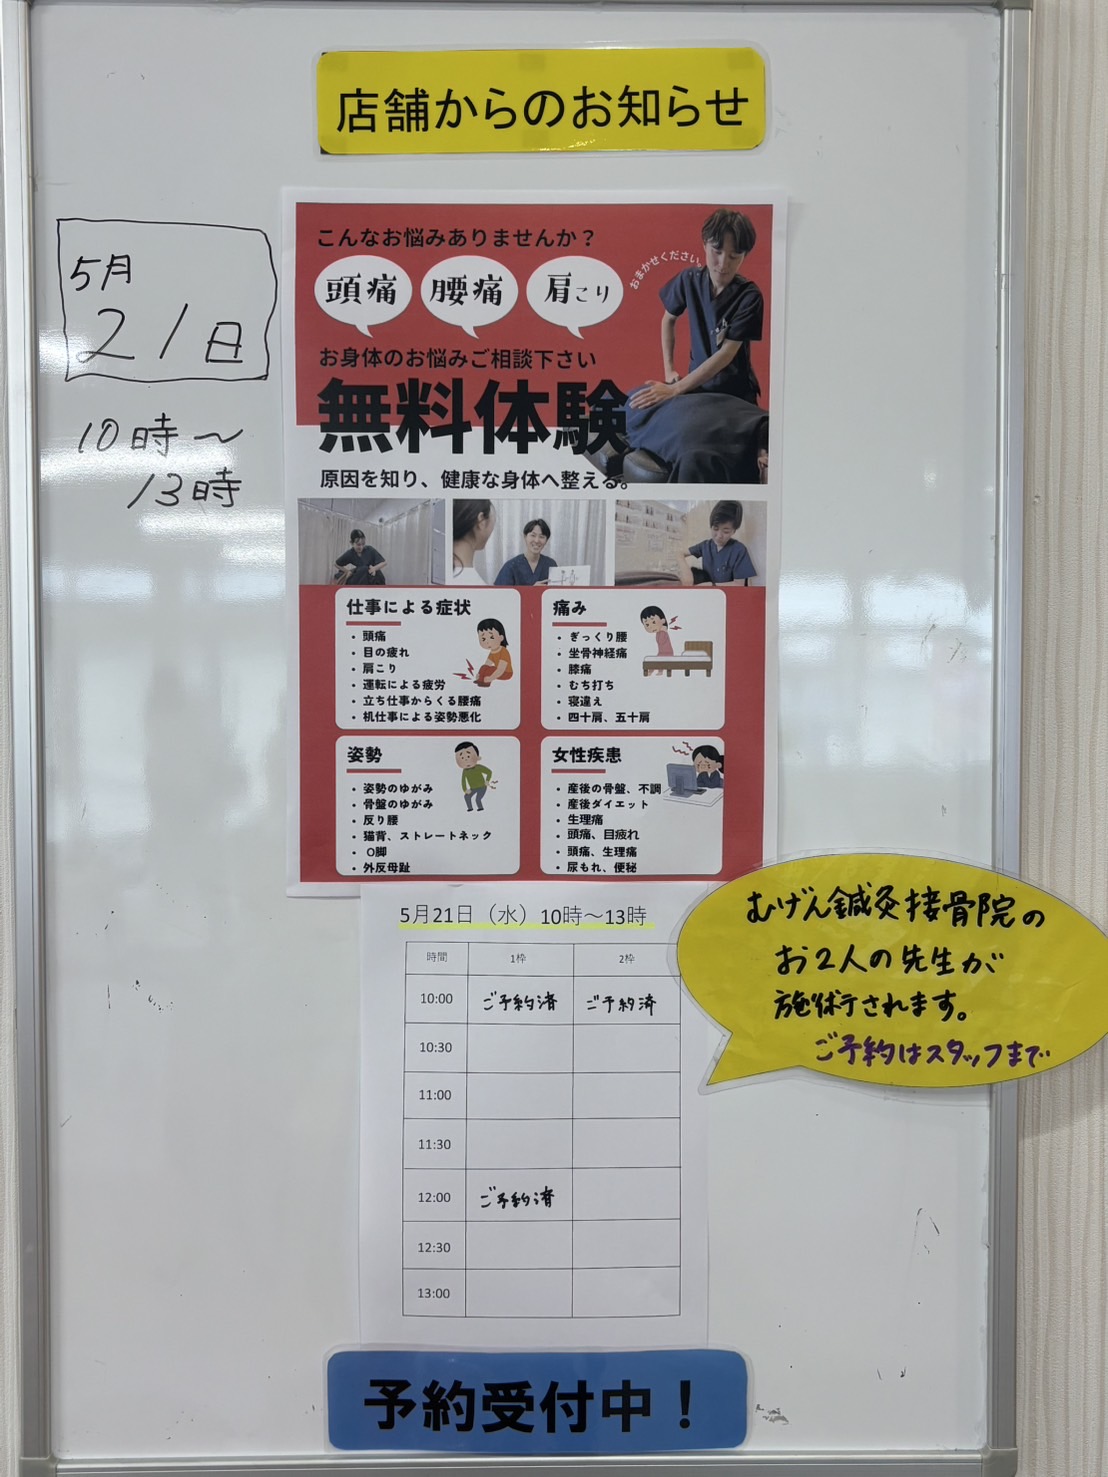 店舗からのお知らせ
5月
21日
10時〜
13時
こんなお悩みありませんか？
頭痛 腰痛 肩こり
おまかせください。
お身体のお悩みご相談下さい
無料体験
原因を知り、健康な身体へ整える。
仕事による症状
・頭痛
・目の疲れ
・肩こり
・運転による疲労
・立ち仕事からくる腰痛
・机仕事による姿勢悪化
痛み
・ぎっくり腰
・坐骨神経痛
・膝痛
・むち打ち
・寝違え
・四十肩、五十肩
姿勢
・姿勢のゆがみ
・骨盤のゆがみ
・反り腰
・猫背、ストレートネック
・O脚
・外反母趾
女性疾患
・産後の骨盤、不調
・産後ダイエット
・生理痛
・頭痛、目疲れ
・頭痛、生理痛
・尿もれ、便秘
むげん鍼灸接骨院の
お2人の先生が
施術されます。
ご予約はスタッフまで
5月21日（水）10時〜13時
時間 1枠 2枠
10:00 ご予約済 ご予約済
10:30
11:00
11:30
12:00 ご予約済
12:30
13:00
予約受付中！